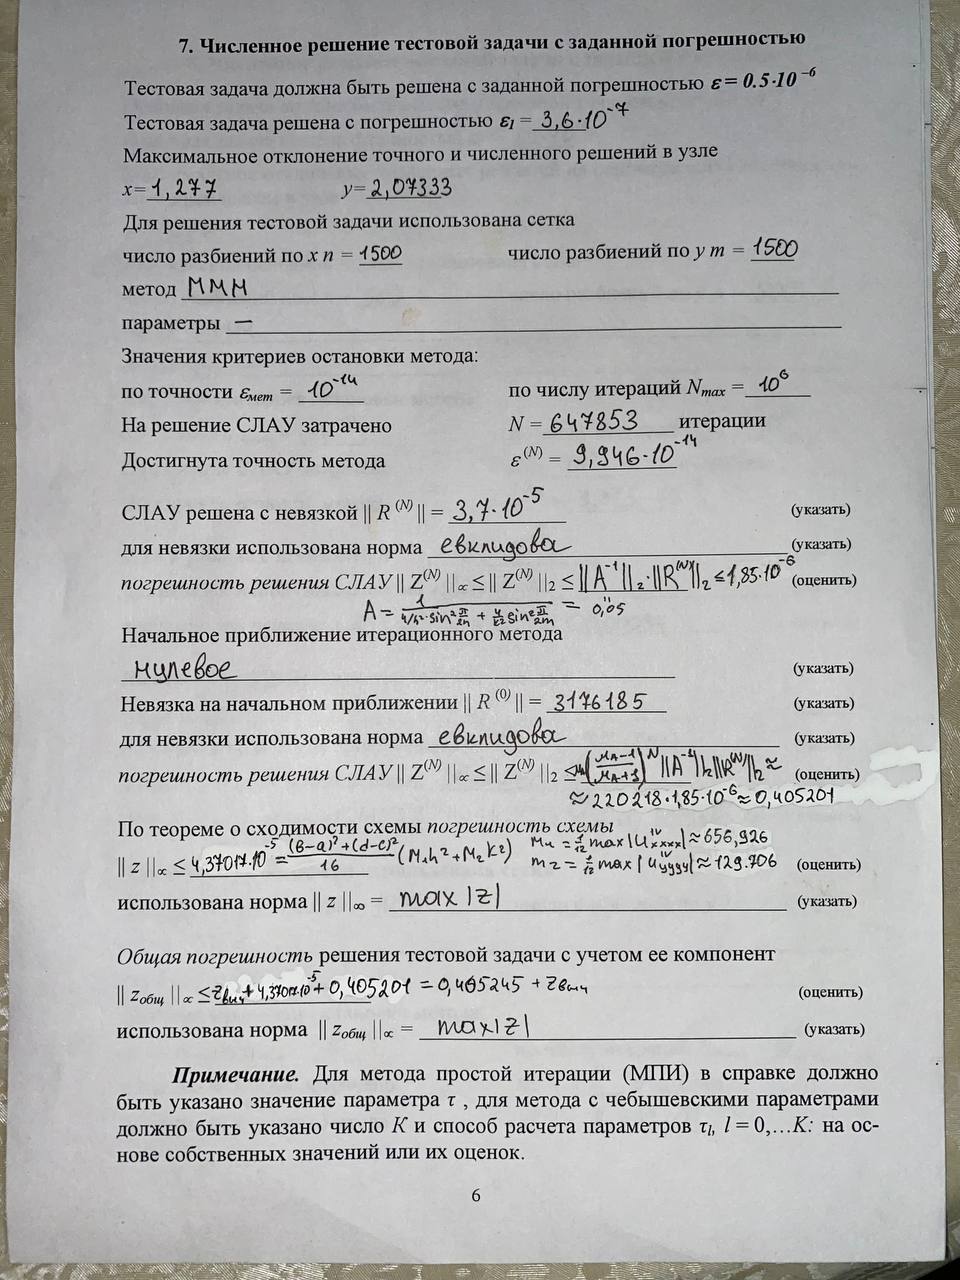 7. Численное решение тестовой задачи с заданной погрешностью
Тестовая задача должна быть решена с заданной погрешностью ε = 0.5·10⁻⁶
Тестовая задача решена с погрешностью ε₁ = 3,6·10⁻⁷
Максимальное отклонение точного и численного решений в узле
x= 1,277 y= 2,07333
Для решения тестовой задачи использована сетка
число разбиений по x n = 1500 число разбиений по y m = 1500
метод ММН
параметры —
Значения критериев остановки метода:
по точности εмет = 10⁻¹⁴ по числу итераций Nmax = 10⁶
На решение СЛАУ затрачено N = 647853 итерации
Достигнута точность метода ε⁽ᴺ⁾ = 9,946·10⁻¹⁴
СЛАУ решена с невязкой || R ⁽ᴺ⁾ || = 3,7·10⁻⁵ (указать)
для невязки использована норма евклидова (указать)
погрешность решения СЛАУ || Z⁽ᴺ⁾ ||∞ ≤ || Z⁽ᴺ⁾ ||₂ ≤ ||A⁻¹||₂·||R⁽ᴺ⁾||₂ ≤ 1,85·10⁻⁶ (оценить)
A = 1 / (4/h² · sin² π/2n + 4/k² sin² π/2m) = 0,05
Начальное приближение итерационного метода
нулевое (указать)
Невязка на начальном приближении || R ⁽⁰⁾ || = 3176185 (указать)
для невязки использована норма евклидова (указать)
погрешность решения СЛАУ || Z⁽ᴺ⁾ ||∞ ≤ || Z⁽ᴺ⁾ ||₂ ≤ (μA−1 / μA+1)ᴺ ||A⁻¹||₂ ||R⁽ᴺ⁾||₂ ≈ (оценить)
≈ 220218·1,85·10⁻⁶ ≈ 0,405201
По теореме о сходимости схемы погрешность схемы M₁ = 1/12 max |Uᴵⱽxxxx| ≈ 656,926
|| z ||∞ ≤ 4,37017·10⁻⁵ = (b−a)²+(d−c)² / 16 (M₁h² + M₂k²) m₂ = 1/12 max | Uᴵⱽyyyy| ≈ 129.706 (оценить)
использована норма || z ||∞ = max |z| (указать)
Общая погрешность решения тестовой задачи с учетом ее компонент
|| zобщ ||∞ ≤ zвыч + 4,37017·10⁻⁵ + 0,405201 = 0,405245 + zвыч (оценить)
использована норма || zобщ ||∞ = max|z| (указать)
Примечание. Для метода простой итерации (МПИ) в справке должно
быть указано значение параметра τ , для метода с чебышевскими параметрами
должно быть указано число K и способ расчета параметров τₗ, l = 0,…K: на ос-
нове собственных значений или их оценок.
6